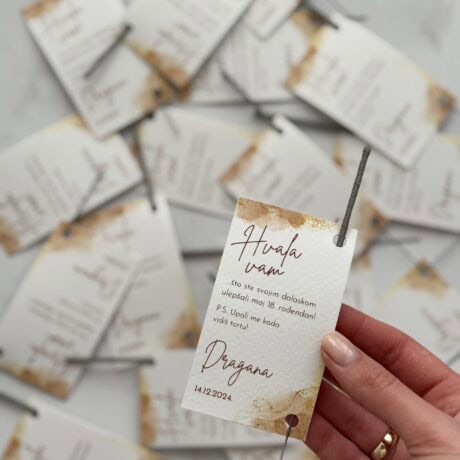 Hvala
vam
...što ste svojim dolaskom
ulepšali moj 18. rođendan!
P.S. Upali me kada
vidiš tortu!
Dragana
14.12.2024.